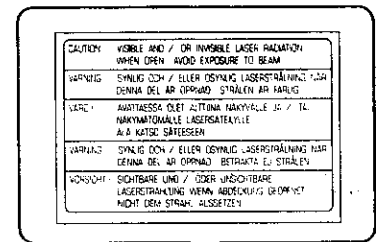 CAUTION VISIBLE AND / OR INVISIBLE LASER RADIATION
WHEN OPEN AVOID EXPOSURE TO BEAM
VARNING SYNLIG OCH / ELLER OSYNLIG LASERSTRÅLNING NÄR
DENNA DEL ÄR ÖPPNAD STRÅLEN ÄR FARLIG
VARO! AVATTAESSA OLET ALTTIINA NÄKYVÄLLE JA / TAI
NÄKYMÄTÖMÄLLE LASERSÄTEILYLLE
ÄLÄ KATSO SÄTEESEEN
VARNING SYNLIG OCH / ELLER OSYNLIG LASERSTRÅLNING NÄR
DENNA DEL ÄR ÖPPNAD BETRAKTA EJ STRÅLEN
VORSICHT! SICHTBARE UND / ODER UNSICHTBARE
LASERSTRAHLUNG WENN ABDECKUNG GEÖFFNET
NICHT DEM STRAHL AUSSETZEN